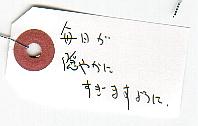 毎日が
穏やかに
すぎますように.